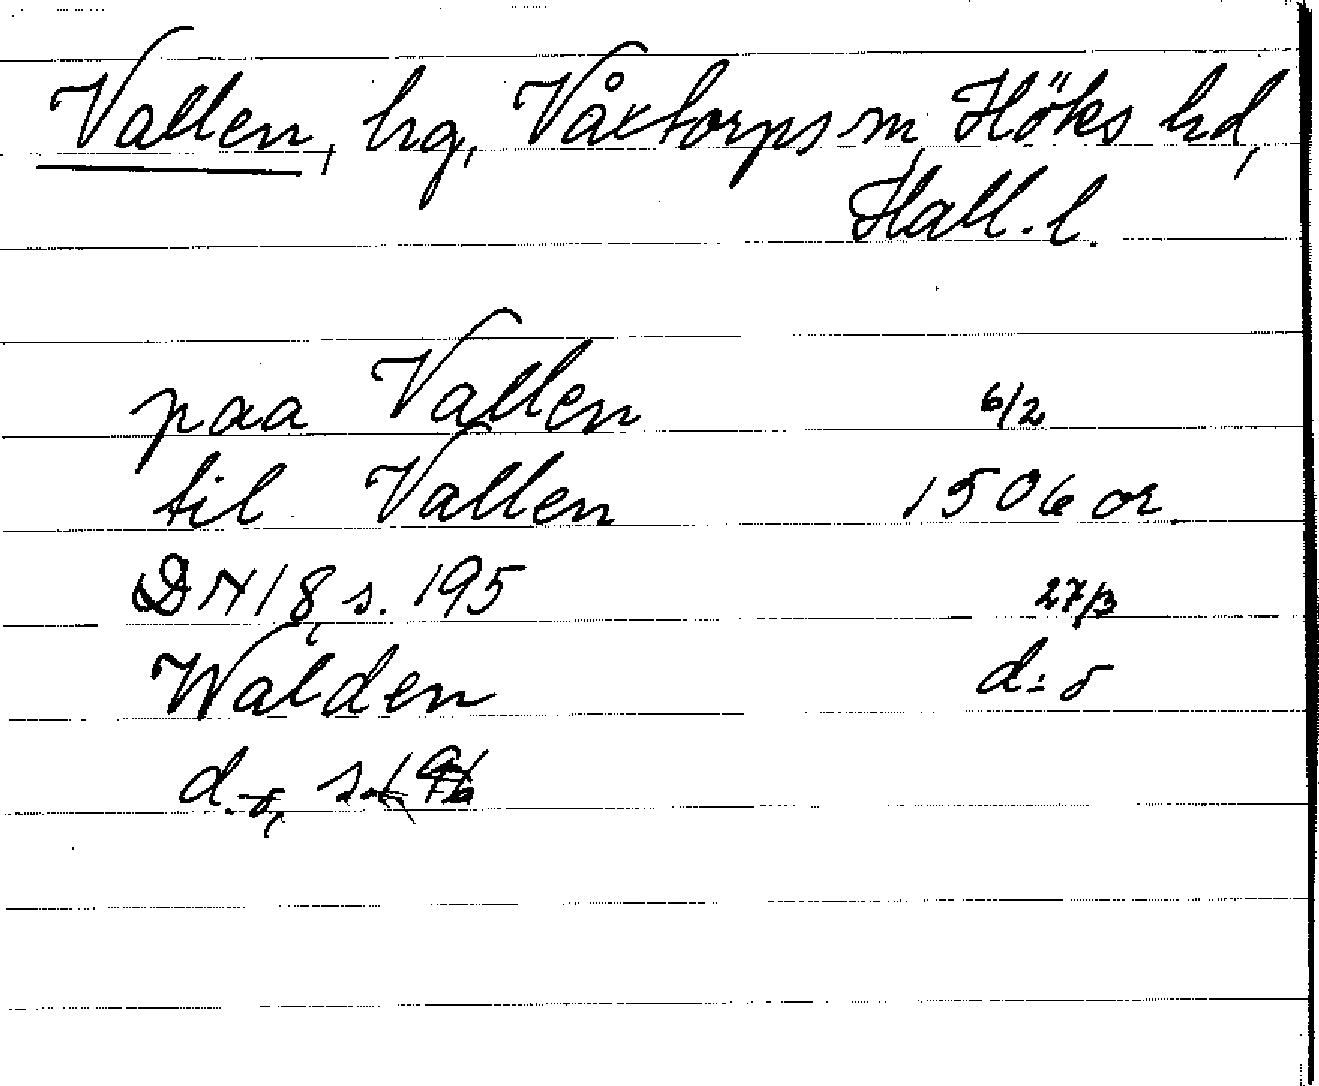 Vallen, hg, Våxtorps sn, Höks hd,
Hall. l.
paa Vallen 6/2
til Vallen 1506 or.
DN 18, s. 195 27/3
Walden d:o
d:o, s.